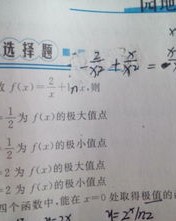 选择题
-2/x² + x/x² =
数 f(x)=2/x+lnx,则
=1/2为 f(x)的极大值点
=1/2为 f(x)的极小值点
=2为 f(x)的极大值点
=2为 f(x)的极小值点
四个函数中,能在 x=0 处取得极值的
y=2^x ln2